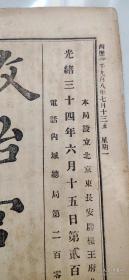 西曆一千九百八年七月十三號 星期一
本局設立北京東長安牌樓王府
光緒三十四年六月十五日第貳百
電話內城總局第二百零
政治官